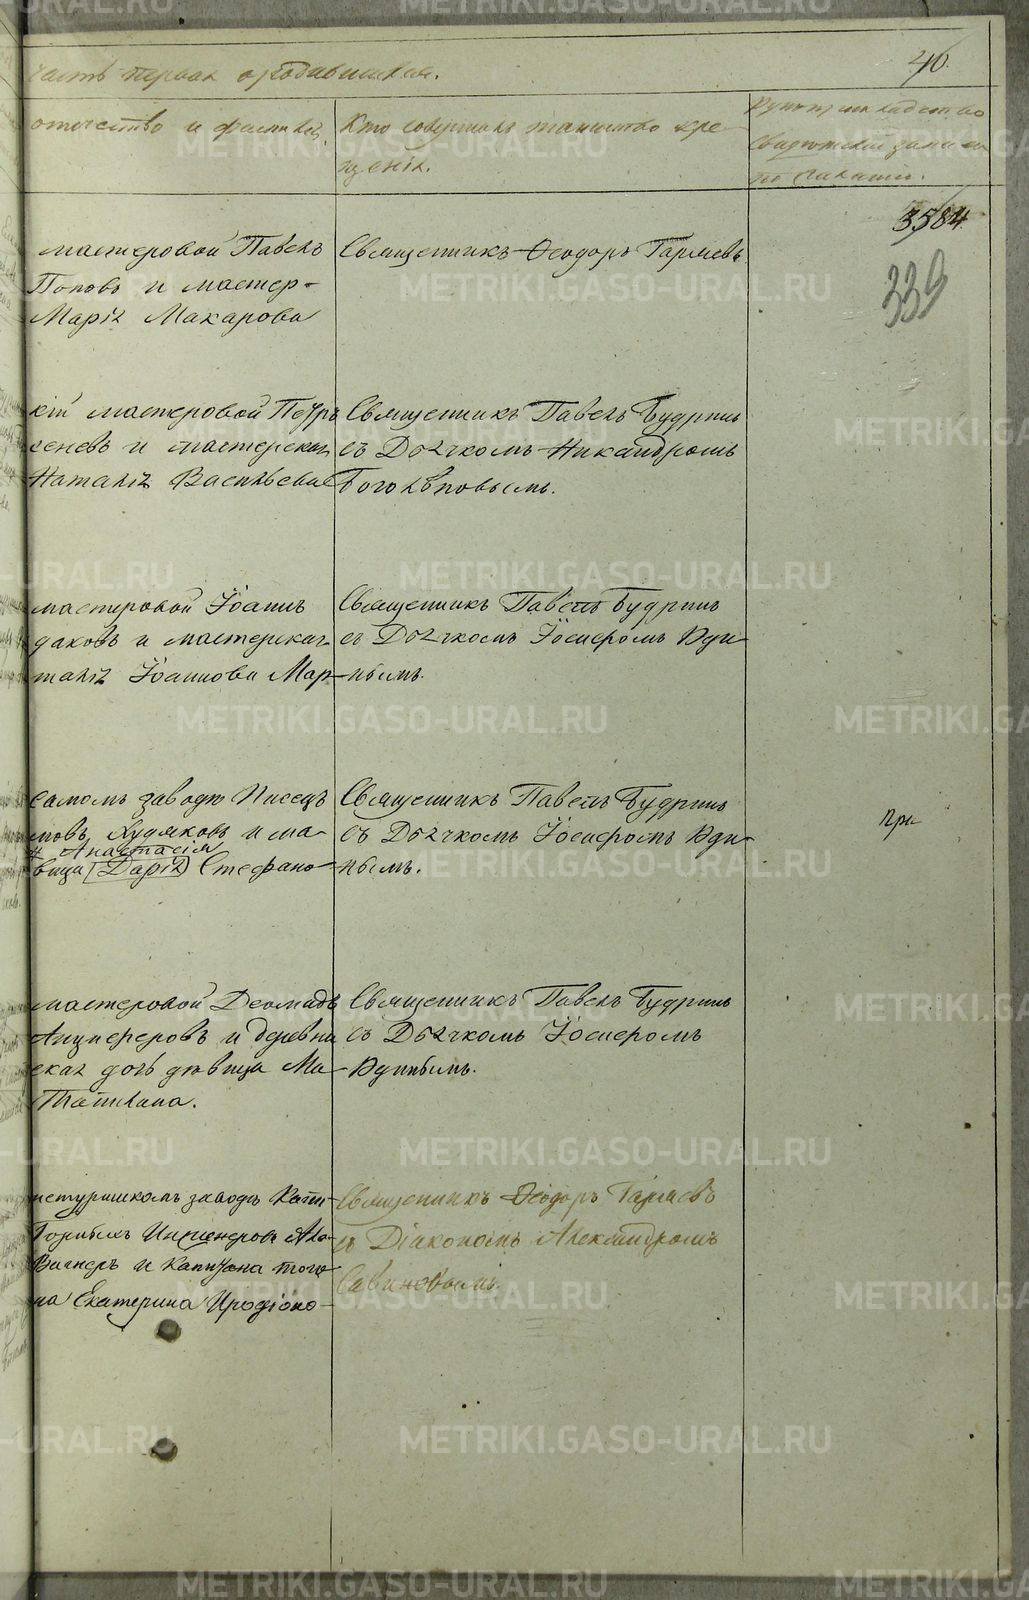 часть первая о родившихся.
40.
отчество и фамилія
Кто совершалъ таинство кре-
щенія.
Рукоприкладство
свидѣтелей записи
по желанію.
3584.
339
мастеровой Павелъ
Поповъ и мастер-
Марія Макарова
Священникъ Ѳеодоръ Гаряевъ
кій мастеровой Петръ
сеневъ и мастерская
Наталія Васильева
Священникъ Павелъ Будринъ
съ Дьячкомъ Никандромъ
Боголѣповымъ.
мастеровой Іоаннъ
даковъ и мастерская
талія Іоаннова Мар-
Священникъ Павелъ Будринъ
съ Дьячкомъ Іосифомъ Уди-
нымъ.
самомъ заводѣ Писецъ
мовъ Худяковъ и ма-
Анастасія
вица (Дарія) Стефано-
Священникъ Павелъ Будринъ
съ Дьячкомъ Іосифомъ Уди-
нымъ.
при-
мастеровой Деомидъ
Анциферовъ и деревни
ская дочь дѣвица Ма-
Священникъ Павелъ Будринъ
съ Дьячкомъ Іосифомъ
Удинымъ.
нетуринскомъ заводѣ Капи-
Горныхъ Инженеровъ Але-
Вагнеръ и Капитана того
на Екатерина Иродіоно-
Священникъ Ѳеодоръ Гаряевъ
съ Діакономъ Александромъ
Савиновымъ.
METRIKI.GASO-URAL.RU